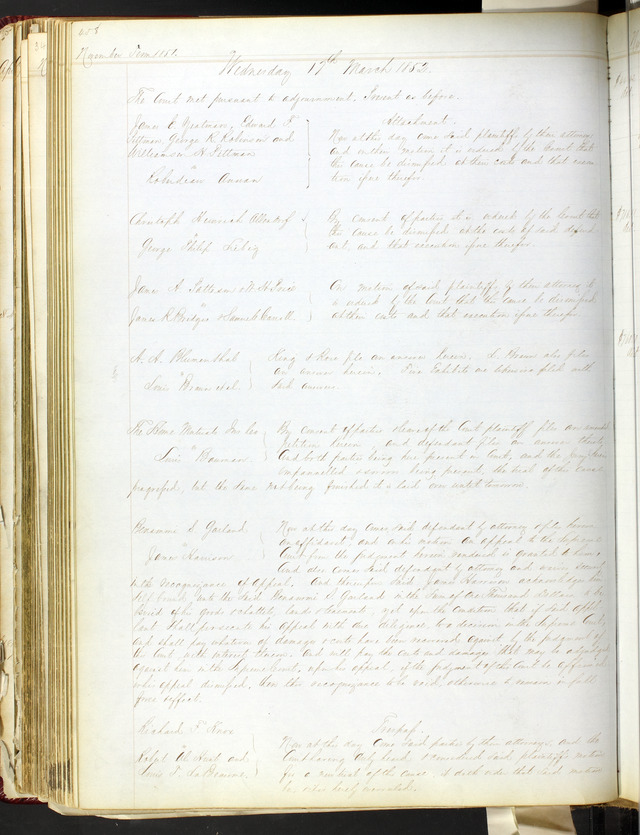 November Term 1851.
Wednesday 17th March 1852.
The Court met pursuant to adjournment. Present as before.
James E. Yeatman, Edward T.
Pittman, George R. Robinson and
Williamson H. Pittman
vs
Robidean Annan
Attachment.
Now at this day come said plaintiffs by their attorney
and on their motion it is ordered by the Court that
this cause be dismissed at their costs and that execution
issue therefor.
Christoph Heinrich
vs
George Philip
By consent of parties it is ordered by the Court that
this cause be dismissed at the costs of said defendant,
and that execution issue therefor.
James A.
vs
James R. Bridges & Samuel Carroll
On motion of said plaintiffs, by their attorney it
is ordered by the Court that this cause be dismissed
at their costs and that execution issue therefor
A. A. Blumenthal
vs
Louis Braun et al.
King & Rose file an answer herein. L. Braun also files
an answer herein. Four Exhibits are likewise filed with
said answers.
The Home Mutual Ins. Co.
vs
Louis Bauman
By consent of parties & leave of the Court plaintiff files an amended
petition herein, and defendant files an answer thereto,
And both parties being here present in Court, and the Jury
empannelled & sworn being present, the trial of this cause
progressed, but the same not being finished it is laid over until tomorrow.
Benammi S. Garland
vs
James Harrison
Now at this day comes said defendant by attorney & files herein
an affidavit and on his motion an appeal to the Supreme
Court from the judgment herein rendered is granted to him.
And also comes said defendant by attorney and
into recognizance of Appeal. And thereupon said James Harrison acknowledges him
self bound unto the said Benammi S. Garland in the sum of One Thousand Dollars to be
levied of his goods & chattels, lands & tenements, yet upon this condition that if said appel
lant shall prosecute his appeal with due diligence to a decision in the Supreme Court,
and shall pay whatever of damages & costs have been recovered against him by the judgment of
this Court with interest thereon. And will pay the costs and damages that may be adjudged
against him in the Supreme Court, upon his appeal, if the judgment of this Court be affirmed
or his appeal dismissed, then this recognizance to be void, otherwise to remain in full
force & effect.
Richard T.
vs
Ralph and
Louis T. LaBeaume
Trespass.
Now at this day come said parties by their attorneys, and the
Court having duly heard & considered said plaintiff's motion
for a new trial of this cause, & doth order that said motion
be and is hereby overruled.